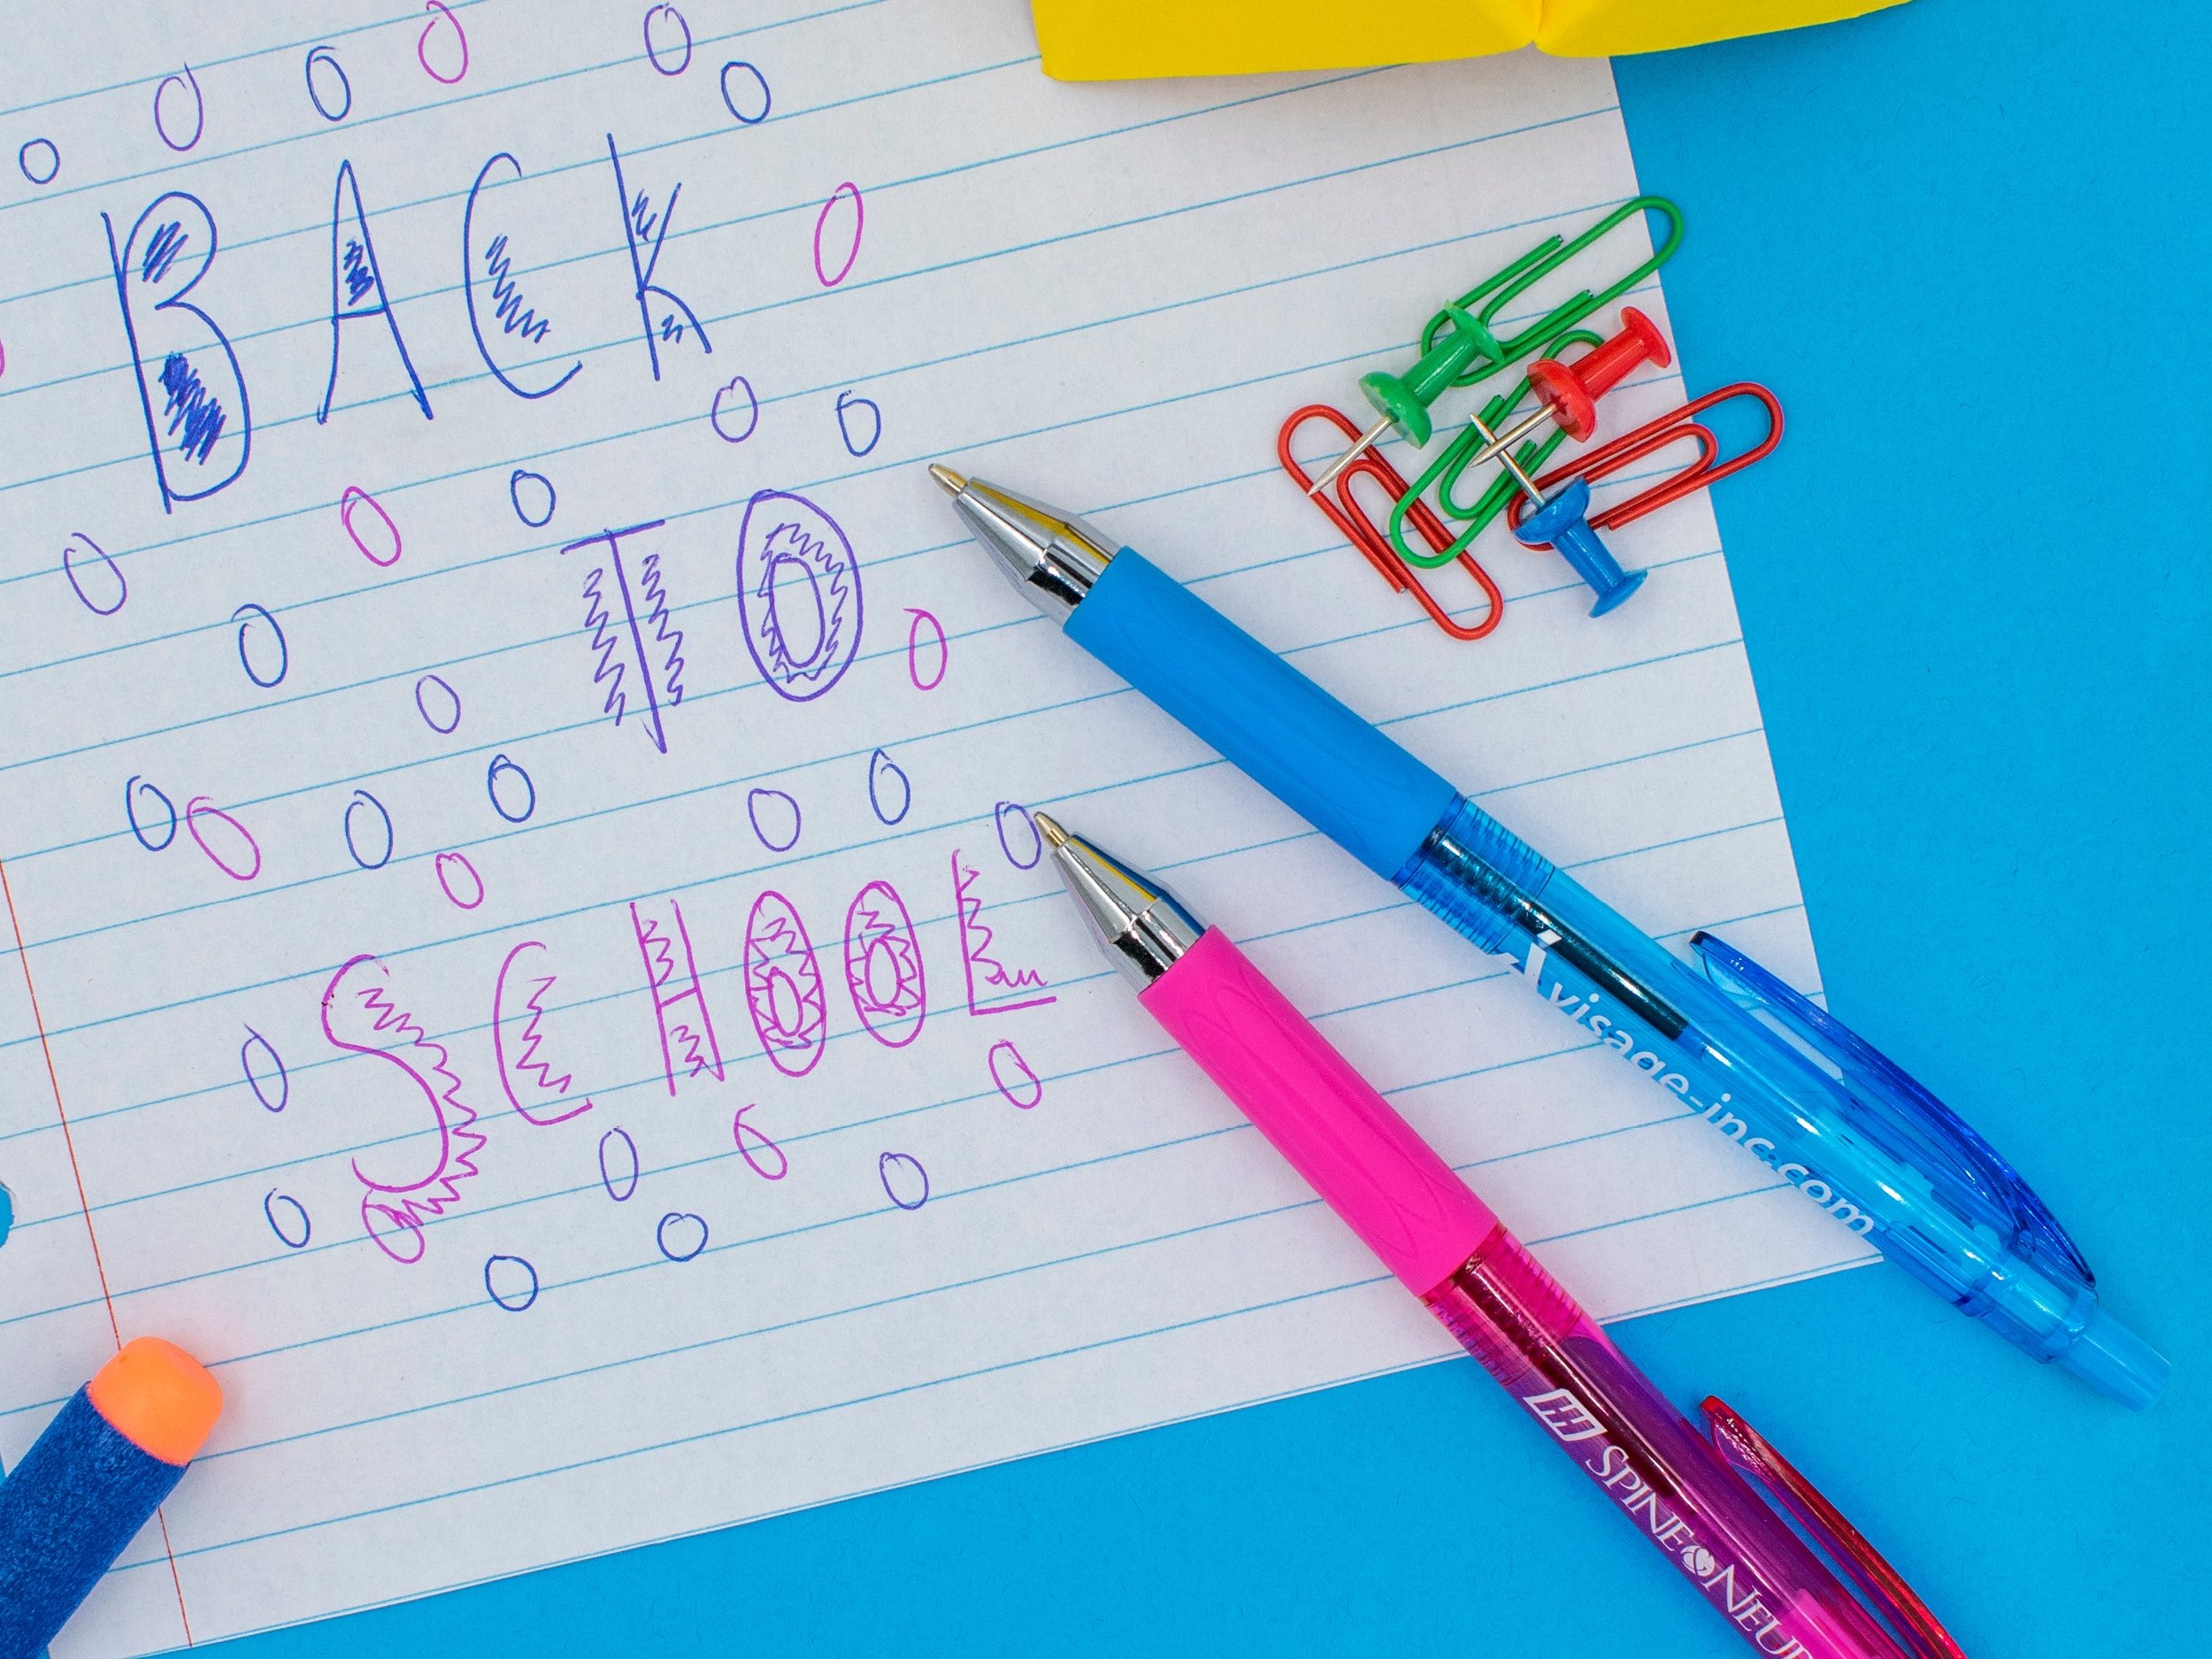 BACK
TO
SCHOOL
Avisage-inc.com
SPINE NEUR